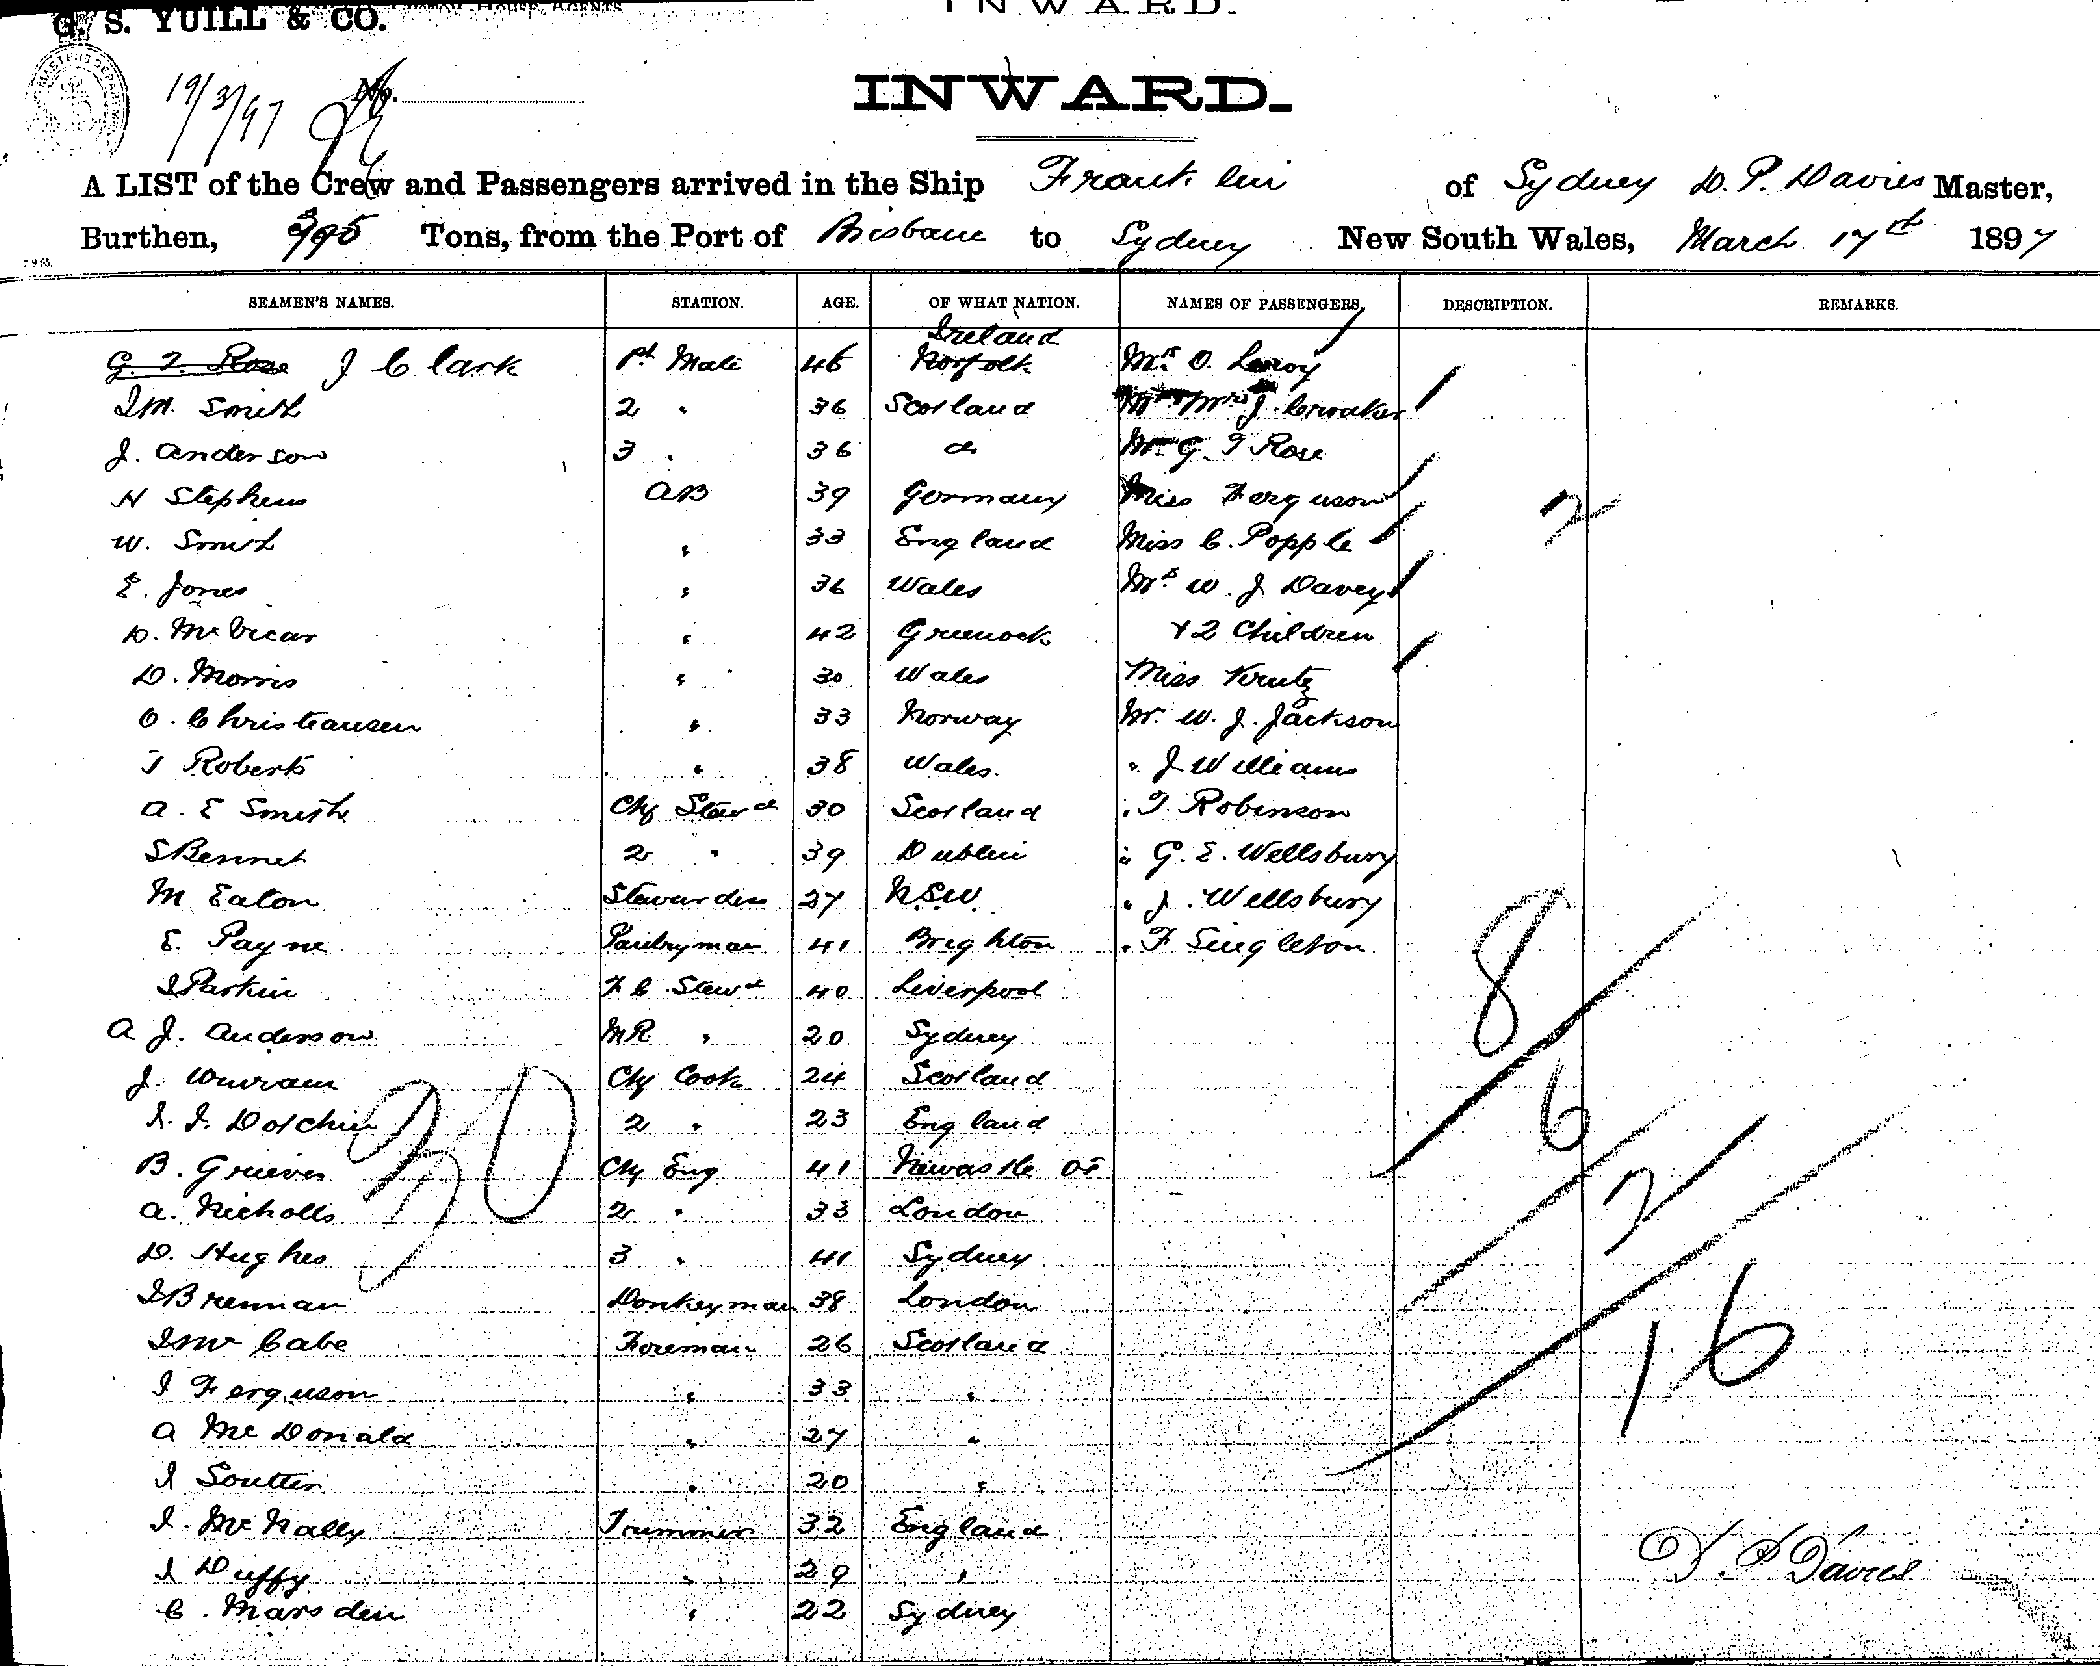 INWARD.
G. S. YUILL & CO.
19/3/97 No.
INWARD.
A LIST of the Crew and Passengers arrived in the Ship Franklin of Sydney D. P. Davies Master,
Burthen, 995 Tons, from the Port of Brisbane to Sydney New South Wales, March 17th 1897
SEAMEN'S NAMES. STATION. AGE. OF WHAT NATION. NAMES OF PASSENGERS. DESCRIPTION. REMARKS.
Ireland
G. T. Rose J Clark 1st Mate 46 Norfolk Mr. O. Leroy
J M. Smith 2 " 36 Scotland Mrs J. Crooaker
J. Anderson 3 " 36 do Mr G. T Rose
H Stephens AB 39 Germany Miss Ferguson 2
W. Smith " 33 England Miss C. Popple
E. Jones " 36 Wales Mrs W. J Davey
D. McVicar " 42 Greenock + 2 Children
D. Morris " 30 Wales Miss Krutz
O. Christiansen " 33 Norway Mr. W. J. Jackson
T Roberts " 38 Wales. " J Williams
A. E Smith Chf Stewd 30 Scotland " T. Robinson
S Bennet 2 " 39 Dublin " G. E. Wellsbury
M Eaton Stewardess 27 N.S.W. " J. Wellsbury
E. Payne Pantryman 41 Brighton " F Singleton 8
J Parkin F C Stewd 40 Liverpool
A J. Anderson MR " 20 Sydney
J. Chf Cook 24 Scotland
J. J. Dotchin 2 " 23 England 6
30
B. Grieves Chf Eng 41 Newcastle OT
A. Nicholls 2 " 33 London 2
D. Hughes 3 " 41 Sydney
J Brennan Donkeyman 38 London
J McCabe Foreman 26 Scotland 16
J Ferguson " 33 "
A McDonald " 27 "
J Soutter " 20 "
J. McNally Trimmer 32 England
J Duffy " 29 " D. P Davies
C. Marsden " 22 Sydney